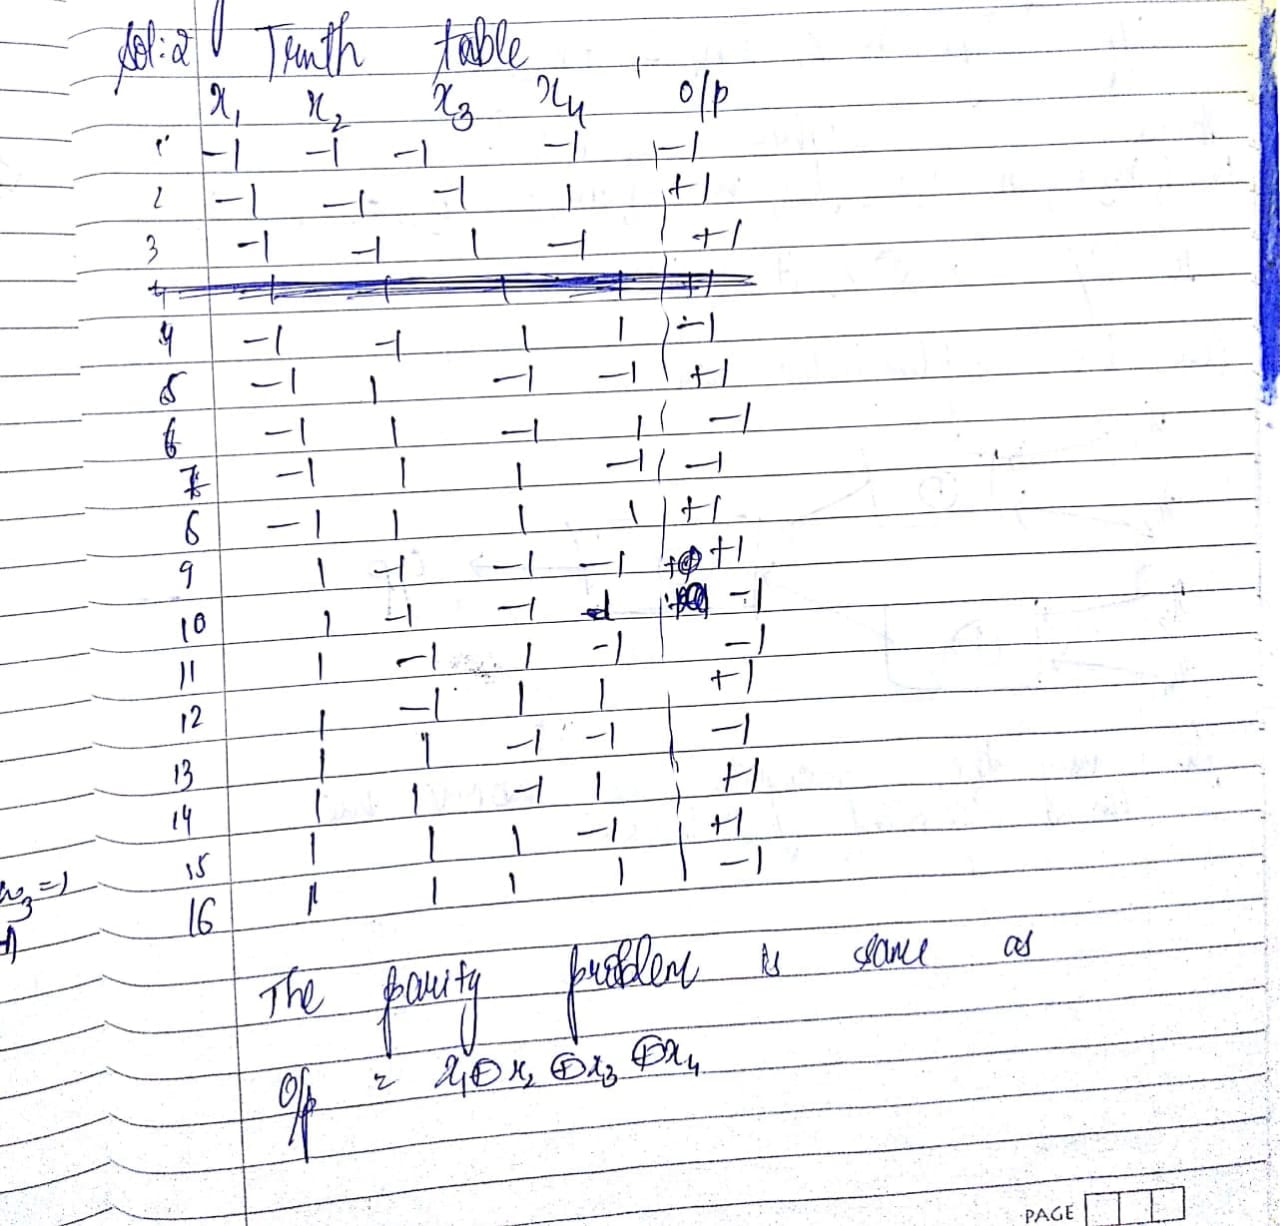 Sol:2 Truth table
x₁ x₂ x₃ x₄ o/p
1 -1 -1 -1 -1 -1
2 -1 -1 -1 1 +1
3 -1 -1 1 -1 +1
4 -1 -1 1 1 -1
5 -1 1 -1 -1 +1
6 -1 1 -1 1 -1
7 -1 1 1 -1 -1
8 -1 1 1 1 +1
9 1 -1 -1 -1 +1
10 1 -1 -1 1 -1
11 1 -1 1 -1 -1
12 1 -1 1 1 +1
13 1 1 -1 -1 -1
14 1 1 -1 1 +1
15 1 1 1 -1 +1
w₃=1
16 1 1 1 1 -1
The parity problem is same as
O/p = x₁⊕x₂⊕x₃⊕x₄
PAGE